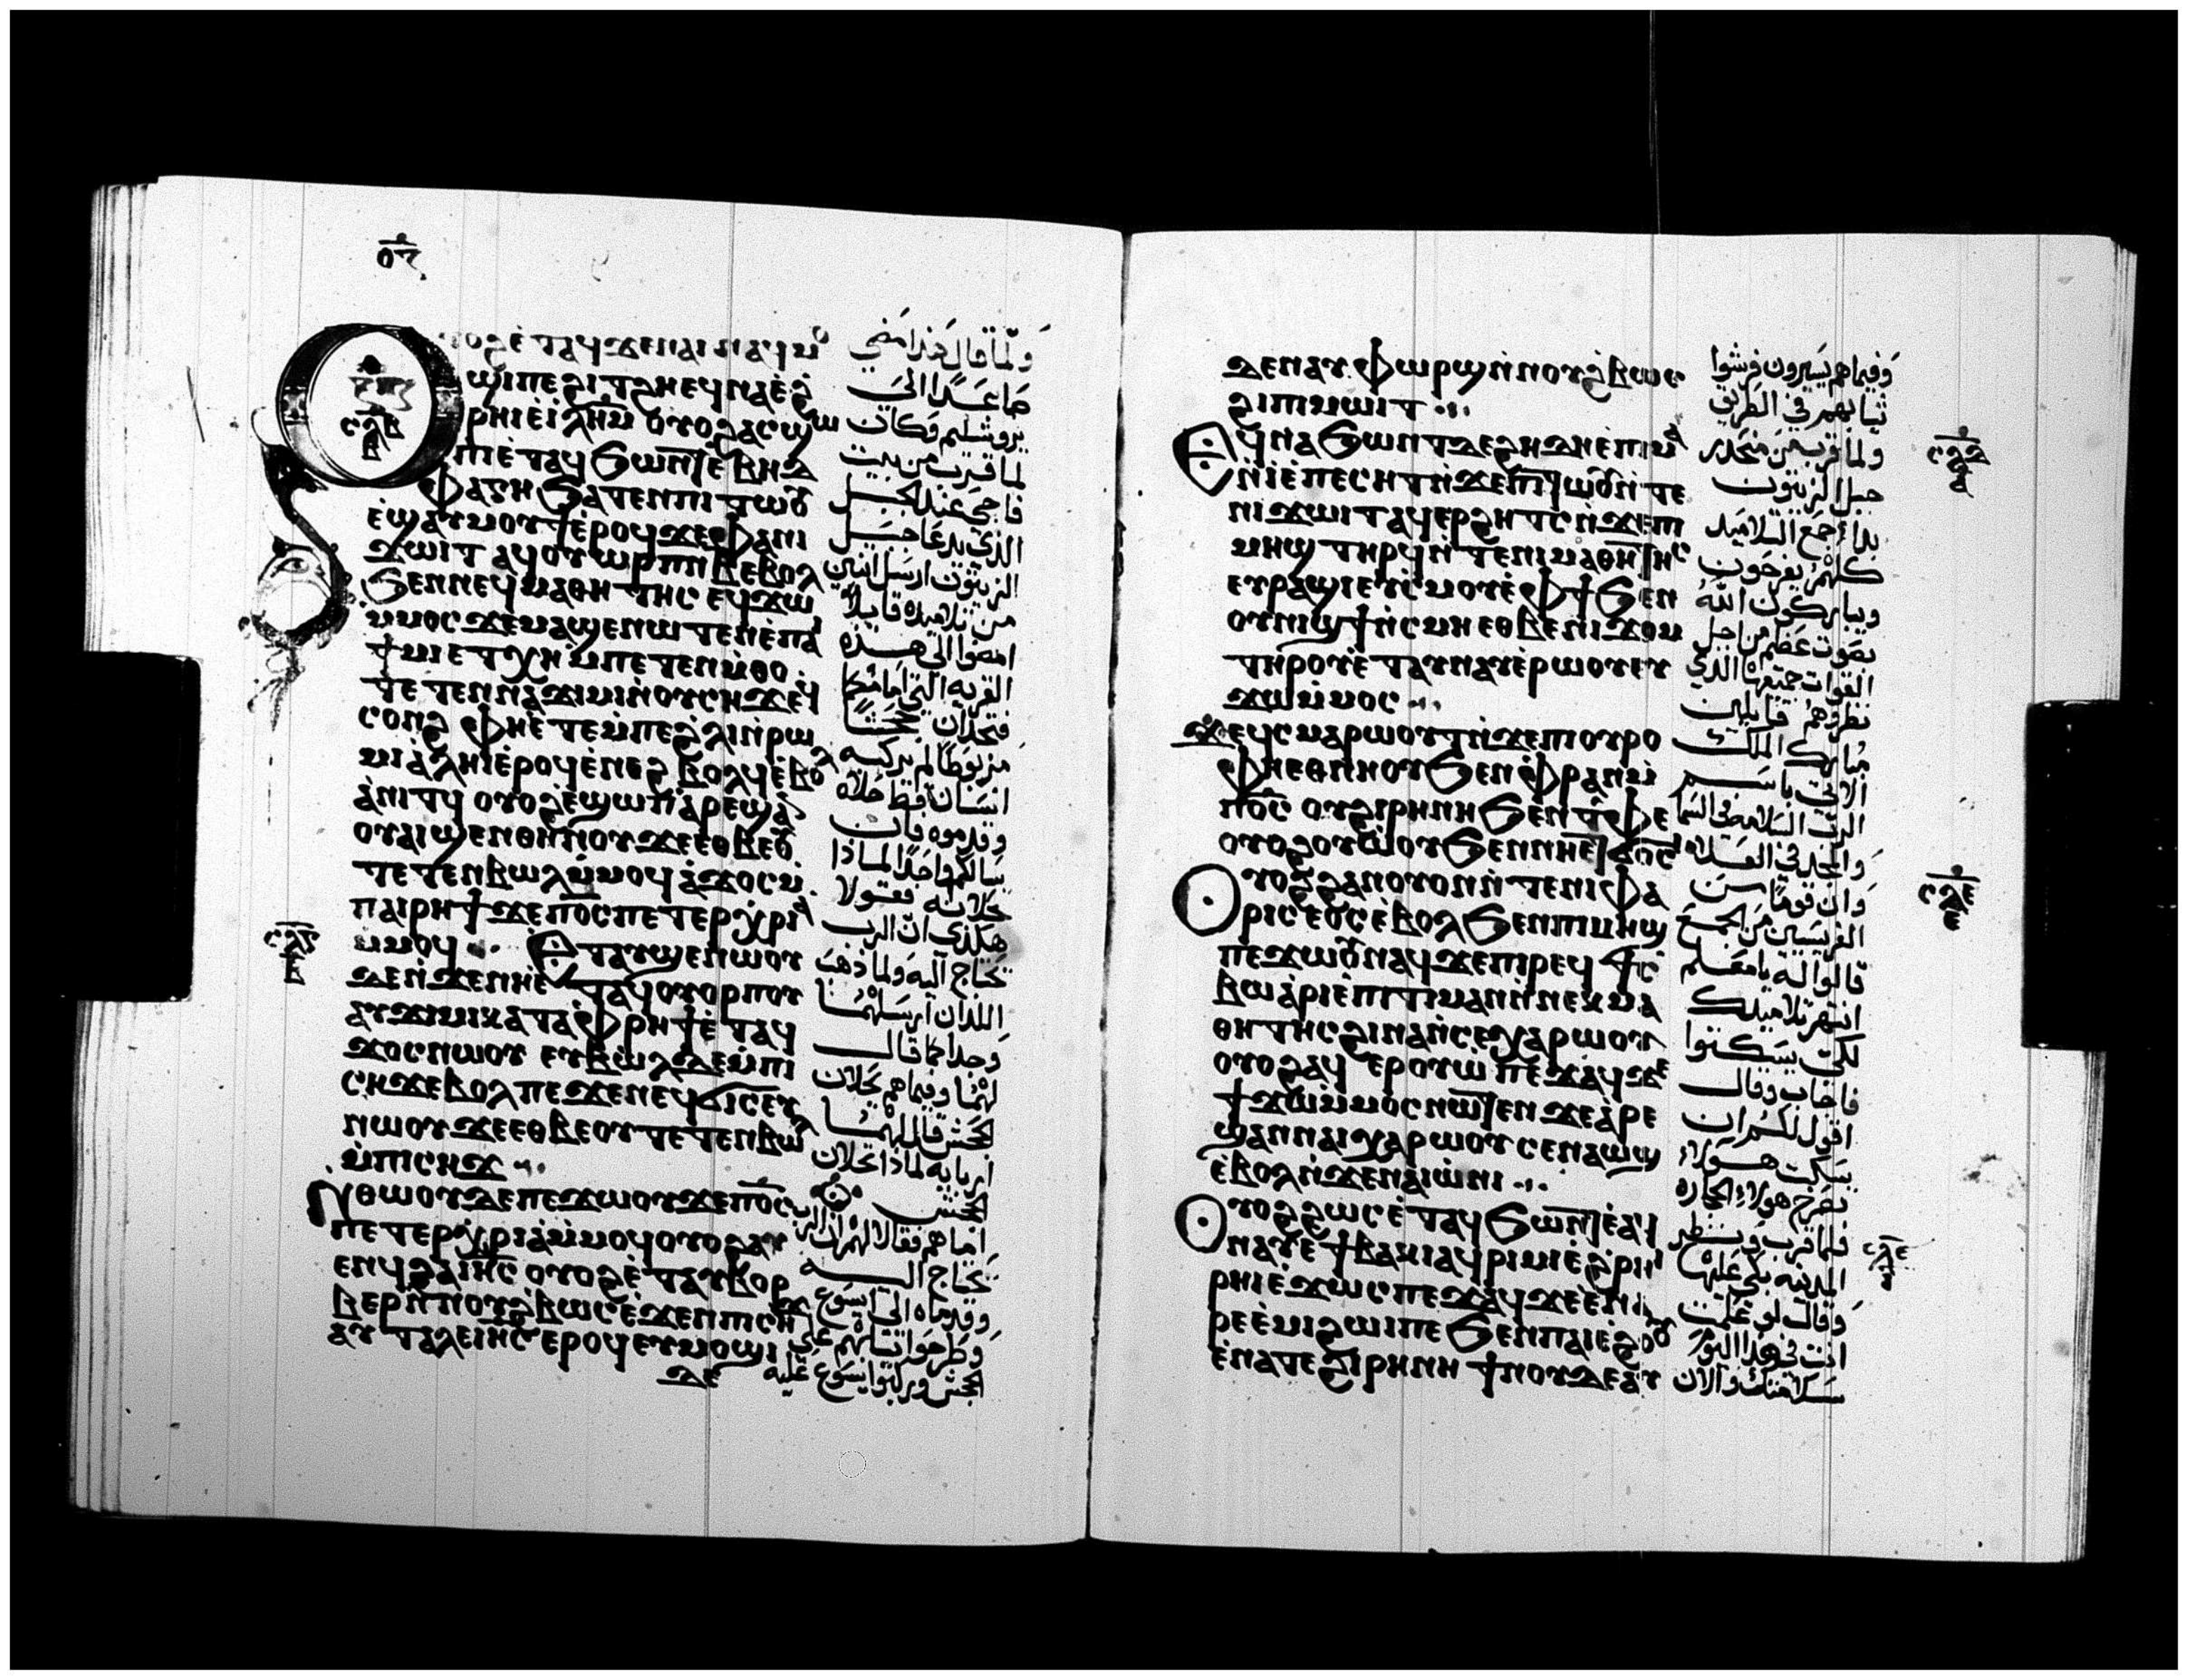 ⲟⲩⲟϩ ⲉ̀ⲧⲁϥϫⲉⲛⲁⲓ ⲛⲁϥⲙⲟ
ϣⲓⲡⲉ ϩⲓⲧϩⲏ ⲉϥⲛⲁⲉ̀ϩ̀
ⲣⲏⲓ ⲉ̀ⲓ̅ⲗ̅ⲏ̅ⲙ̅ ⲟⲩⲟϩ ⲁⲥϣⲱ
ⲡⲓ ⲉ̀ⲧⲁϥϧⲱⲛⲧ ⲉ̀ⲃⲏⲑ
ⲫⲁⲅⲏ ϧⲁⲧⲉⲛ ⲡⲓⲧⲱⲟⲩ
ⲉ̀ϣⲁⲩⲙⲟⲩϯ ⲉ̀ⲣⲟϥ ϫⲉ ⲫⲁⲛⲓ
ϫⲱⲓⲧ ⲁϥⲟⲩⲱⲣⲡ ⲛ̀ⲃ̅ ⲉⲃⲟⲗ
ϧⲉⲛ ⲛⲉϥⲙⲁⲑⲏⲧⲏⲥ ⲉϥϫⲱ
ⲙ̀ⲙⲟⲥ ϫⲉ ⲙⲁϣⲉⲛⲱⲧⲉⲛ ⲉ̀ⲡⲁⲓ
ϯⲙⲓ ⲉⲧⲭⲏ ⲙ̀ⲡⲉⲧⲉⲛⲙ̀ⲑⲟ
ⲧⲉⲧⲉⲛⲛⲁϫⲓⲙⲓ ⲛ̀ⲟⲩⲥⲏϫ ⲉϥ
ⲥⲟⲛϩ ⲫⲏⲉ̀ⲧⲉ ⲙ̀ⲡⲉ ϩ̀ⲗⲓ ⲛ̀ⲣⲱ
ⲙⲓ ⲁ̀ⲗⲏⲓ ⲉ̀ⲣⲟϥ ⲉ̀ⲛⲉϩ ⲃⲟⲗϥ ⲉ̀ⲃⲟⲗ
ⲁ̀ⲛⲓⲧϥ ⲟⲩⲟϩ ⲉ̀ϣⲱⲡ ⲁ̀ⲣⲉϣⲁⲛ
ⲟⲩⲁⲓ ϣⲉⲛ ⲑⲏⲛⲟⲩ ϫⲉ ⲉⲑⲃⲉⲟⲩ
ⲧⲉⲧⲉⲛⲃⲱⲗ ⲙ̀ⲙⲟϥ ⲁ̀ϫⲟⲥ ⲙ̀
ⲡⲁⲓⲣⲏϯ ϫⲉ ⲡ̅ⲟ̅ⲥ̅ ⲡⲉⲧⲉⲣⲭⲣⲓⲁ
ⲙ̀ⲙⲟϥ ⲉⲧⲁⲩϣⲉⲛⲱⲟⲩ
ⲇⲉ ⲛ̀ϫⲉ ⲛⲏⲉ̀ⲧⲁϥⲟⲩⲟⲣⲡⲟⲩ
ⲁⲩϫⲓⲙⲓ ⲕⲁⲧⲁ ⲫⲣⲏϯ ⲉ̀ⲧⲁϥ
ϫⲟⲥ ⲛⲱⲟⲩ ⲉⲩⲃⲱⲗ ⲇⲉ ⲙ̀ⲡⲓ
ⲥⲏϫ ⲉⲃⲟⲗ ⲡⲉϫⲉ ⲛⲉϥϭⲓⲥⲉⲩ
ⲛⲱⲟⲩ ϫⲉ ⲉⲑⲃⲉⲟⲩ ⲧⲉⲧⲉⲛⲃⲱⲗ
ⲙ̀ⲡⲓⲥⲏϫ
ⲛⲑⲱⲟⲩ ⲇⲉ ⲡⲉϫⲱⲟⲩ ϫⲉ ⲡ̅ⲟ̅ⲥ̅
ⲡⲉⲧⲉⲣⲭⲣⲓⲁ ⲙ̀ⲙⲟϥ ⲟⲩⲟϩ ⲁⲩ
ⲉⲛϥ ϩⲁ ⲓⲏ̅ⲥ̅ ⲟⲩⲟϩ ⲉ̀ⲧⲁⲩⲃⲟⲣ
ⲃⲉⲣ ⲛ̀ⲛⲟⲩϩ̀ⲃⲱⲥ ⲉ̀ϫⲉⲛ ⲡⲓⲥⲏϫ
ⲁⲩⲧⲁⲗⲉ ⲓⲏ̅ⲥ̅ ⲉⲣⲟϥ ⲉⲩⲙⲟϣⲓ
ⲇⲉ
ولما قال هذا مضى
صاعدا الى
يروشليم وكان
لما قرب من بيت
فاجي عند الجبل
الذي يدعا جبل
الزيتون ارسل اثنين
من تلاميذه قايلا
امضوا الى هذه
القريه التي امامكما
فتجدان جحشا
مربوطا لم يركبه
انسان قط حلاه
وقدموه فان
سالكم واحدا لماذا
تحلانه فقولا
هكذي ان الرب
محتاج اليه ولما ذهب
اللذان ارسلهما
وجدا كما قال
لهما وفيما هم يحلان
الجحش قال لهما
اربابه لماذا تحلان
الجحش
اما هم فقالا لهم ان الرب
محتاج اليه
وقدماه الى يسوع
وطرحوا ثيابهم على
الجحش وركبوا يسوع عليه
ⲇⲉ ⲛⲁⲩⲫⲱⲣϣ ⲛ̀ⲛⲟⲩϩ̀ⲃⲱⲥ
ϩⲓ ⲡⲓⲙⲱⲓⲧ
ⲉϥⲛⲁϧⲱⲛⲧ ⲇⲉ ϩⲏⲇⲏ ⲉ̀ⲡⲓⲙⲁ
ⲛ̀ⲓ̀ ⲉ̀ⲡⲉⲥⲏⲧ ⲛ̀ϫⲉ ⲡⲓⲧⲱⲟⲩ ⲛ̀ⲧⲉ
ⲛⲓϫⲱⲓⲧ ⲁϥⲉⲣϩⲏⲧⲥ ⲛ̀ϫⲉ ⲡⲓ
ⲙⲏϣ ⲧⲏⲣϥ ⲛ̀ⲧⲉ ⲛⲓⲙⲁⲑⲏⲧⲏⲥ
ⲉⲩⲣⲁϣⲓ ⲉⲩⲥ̀ⲙⲟⲩ ⲉ̀ⲫϯ ϧⲉⲛ
ⲟⲩⲛⲓϣϯ ⲛ̀ⲥⲙⲏ ⲉⲑⲃⲉ ⲛⲓϫⲟⲙ
ⲧⲏⲣⲟⲩ ⲉ̀ⲧⲁⲩⲛⲁⲩ ⲉ̀ⲣⲱⲟⲩ ⲉⲩ
ϫⲱ ⲙ̀ⲙⲟⲥ
ϫⲉ ϥⲥⲙⲁⲣⲱⲟⲩⲧ ⲛ̀ϫⲉ ⲡⲟⲩⲣⲟ
ⲫⲏⲉⲑⲛⲏⲟⲩ ϧⲉⲛ ⲫⲣⲁⲛ ⲙ̀
ⲡ̅ⲟ̅ⲥ̅ ⲟⲩϩⲓⲣⲏⲛⲏ ϧⲉⲛ ⲧⲫⲉ
ⲟⲩⲟϩ ⲟⲩⲱⲟⲩ ϧⲉⲛ ⲛⲏⲉⲧϭⲟⲥⲓ
ⲟⲩⲟϩ ϩⲁⲛⲟⲩⲟⲛ ⲛ̀ⲧⲉ ⲛⲓⲫⲁ
ⲣⲓⲥⲉⲟⲥ ⲉ̀ⲃⲟⲗ ϧⲉⲛ ⲡⲓⲙⲏϣ
ⲡⲉϫⲱⲟⲩ ⲛⲁϥ ϫⲉ ⲡⲓⲣⲉϥϯⲥ̀
ⲃⲱ ⲁ̀ⲣⲓⲉⲡⲓⲧⲓⲙⲁⲛ ⲛ̀ⲛⲉⲕⲙⲁ
ⲑⲏⲧⲏⲥ ϩⲓⲛⲁ ⲛ̀ⲥⲉⲭⲁⲣⲱⲟⲩ
ⲟⲩⲟϩ ⲁϥⲉⲣⲟⲩⲱ̀ ⲡⲉϫⲁϥ ϫⲉ
ϯϫⲱ ⲙ̀ⲙⲟⲥ ⲛⲱⲧⲉⲛ ϫⲉ ⲁ̀ⲣⲉ
ϣⲁⲛ ⲛⲁⲓ ⲭⲁⲣⲱⲟⲩ ⲥⲉⲛⲁⲱϣ
ⲉ̀ⲃⲟⲗ ⲛ̀ϫⲉ ⲛⲁⲓⲱ̀ⲛⲓ
ⲟⲩⲟϩ ϩⲱⲥ ⲉ̀ⲧⲁϥϧⲱⲛⲧ ⲉ̀ⲁϥ
ⲛⲁⲩ ⲉ̀ϯⲃⲁⲕⲓ ⲁϥⲣⲓⲙⲓ ⲉ̀ϩ̀ⲣⲏⲓ
ⲉ̀ϫⲱⲥ ⲡⲉϫⲁϥ ϫⲉ ⲉ̀ⲛⲁ
ⲣⲉⲉ̀ⲙⲓ ϩⲱⲓ ⲡⲉ ϧⲉⲛ ⲡⲁⲓⲉϩⲟⲟⲩ
ⲉ̀ⲛⲁⲧⲉϩⲓⲣⲏⲛⲏ ϯⲛⲟⲩ ⲇⲉ ⲁⲩ
وفيما هم يسيرون فرشوا
ثيابهم في الطريق
ولما قرب من منحدر
جبل الزيتون
بدا جمع التلاميذ
كلهم يفرحون
ويباركون الله
بصوت عظيم من اجل
القوات جميعها الذي
نظروهم قايلين
مبارك الملك
الاتي باسم
الرب السلامه في السما
والمجد في العلا
وان قوما من
الفريسيين من الجمع
قالوا له يا معلم
انتهر تلاميذك
لكي يسكتوا
فاجاب وقال
اقول لكم ان
سكت هولاء
تصرخ هولاء الحجاره
فلما قرب ونظر
المدينه بكى عليها
وقال لو علمت
انت في هذا اليوم
سلامتك والان